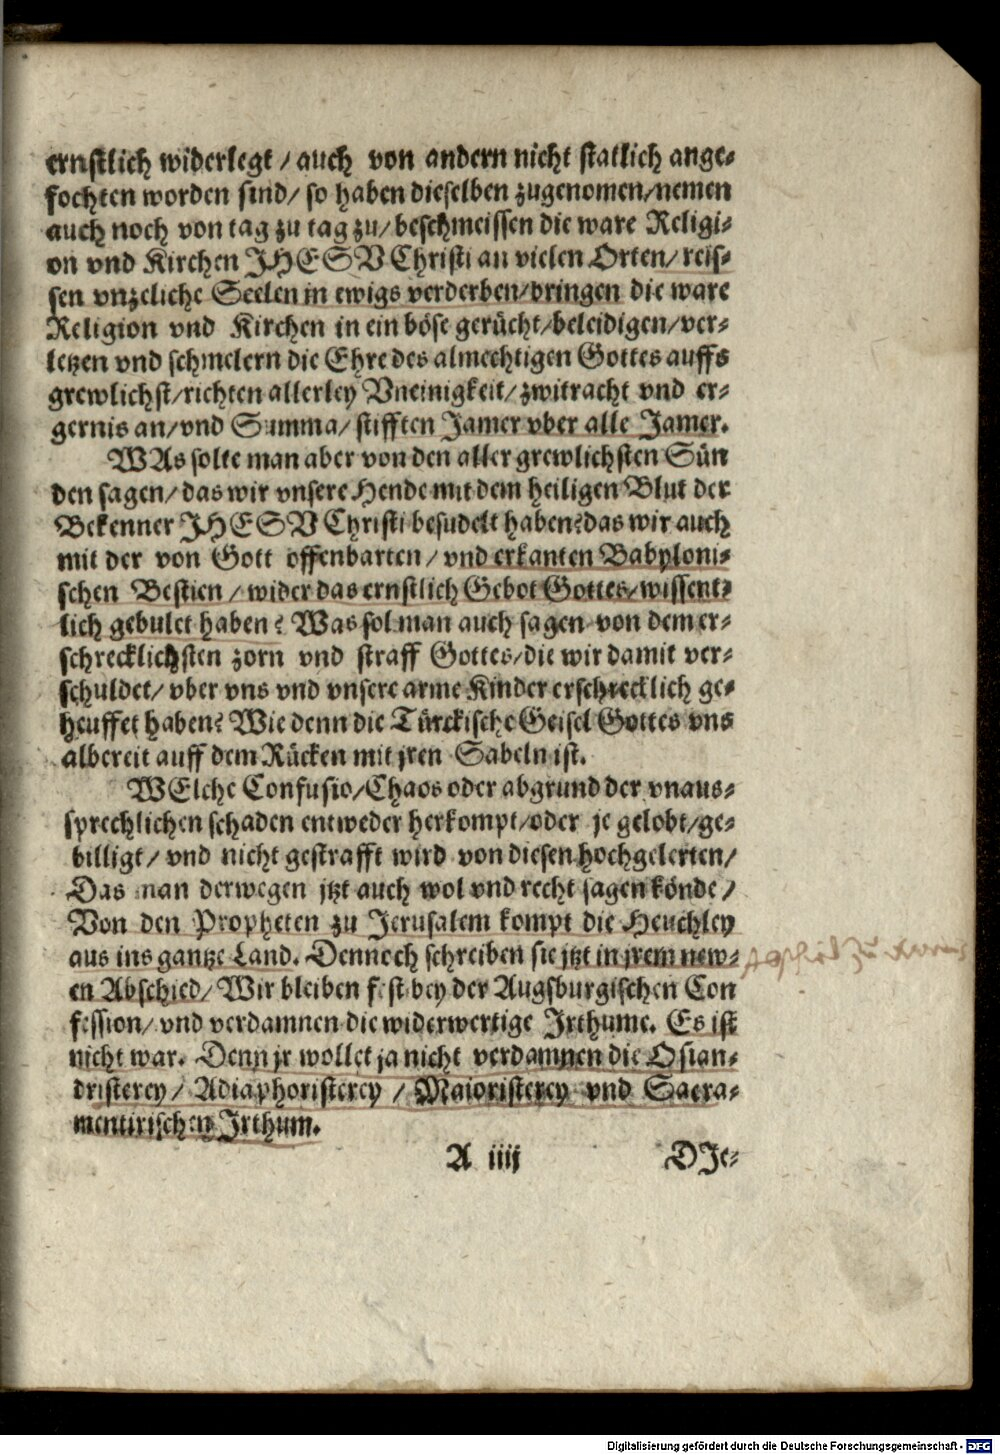 ernstlich widerlegt / auch von andern nicht statlich ange-
fochten worden sind/ so haben dieselben zugenomen/nemen
auch noch von tag zu tag zu/ beschmeissen die ware Religi-
on vnd Kirchen JHESV Christi an vielen Orten/ reis-
sen vnzeliche Seelen in ewigs verderben/bringen die ware
Religion vnd Kirchen in ein böse gerücht/beleidigen/ver-
letzen vnd schmelern die Ehre des almechtigen Gottes auffs
grewlichst/richten allerley Vneinigkeit/ zwitracht vnd er-
gernis an/vnd Summa/ stifften Jamer vber alle Jamer.
WAs solte man aber von den aller grewlichsten Sün
den sagen/ das wir vnsere Hende mit dem heiligen Blut der
Bekenner JHESV Christi besudelt haben? das wir auch
mit der von Gott offenbarten/ vnd erkanten Babyloni-
schen Bestien / wider das ernstlich Gebot Gottes/ wissent-
lich gebulet haben? Was sol man auch sagen von dem er-
schrecklichsten zorn vnd straff Gottes/die wir damit ver-
schuldet/ vber vns vnd vnsere arme Kinder erschrecklich ge-
heuffet haben? Wie denn die Türckische Geisel Gottes vns
albereit auff dem Rücken mit jren Sabeln ist.
WElche Confusio/Chaos oder abgrund der vnaus-
sprechlichen schaden entweder herkompt/oder je gelobt/ge-
billigt/ vnd nicht gestrafft wird von diesen hochgelerten/
Das man derwegen jtzt auch wol vnd recht sagen könde/
Von den Propheten zu Jerusalem kompt die Heuchley
aus ins gantze Land. Dennoch schreiben sie jtzt in jrem new-
en Abschied/ Wir bleiben fest bey der Augsburgischen Con
fession/ vnd verdamnen die widerwertige Irthume. Es ist
nicht war. Denn jr wollet ja nicht verdamnen die Osian-
dristerey/ Adiaphoristerey / Maioristerey vnd Sacra-
mentirischen Irthum.
A iiij DJe-
Abschied zu
Digitalisierung gefördert durch die Deutsche Forschungsgemeinschaft - DFG